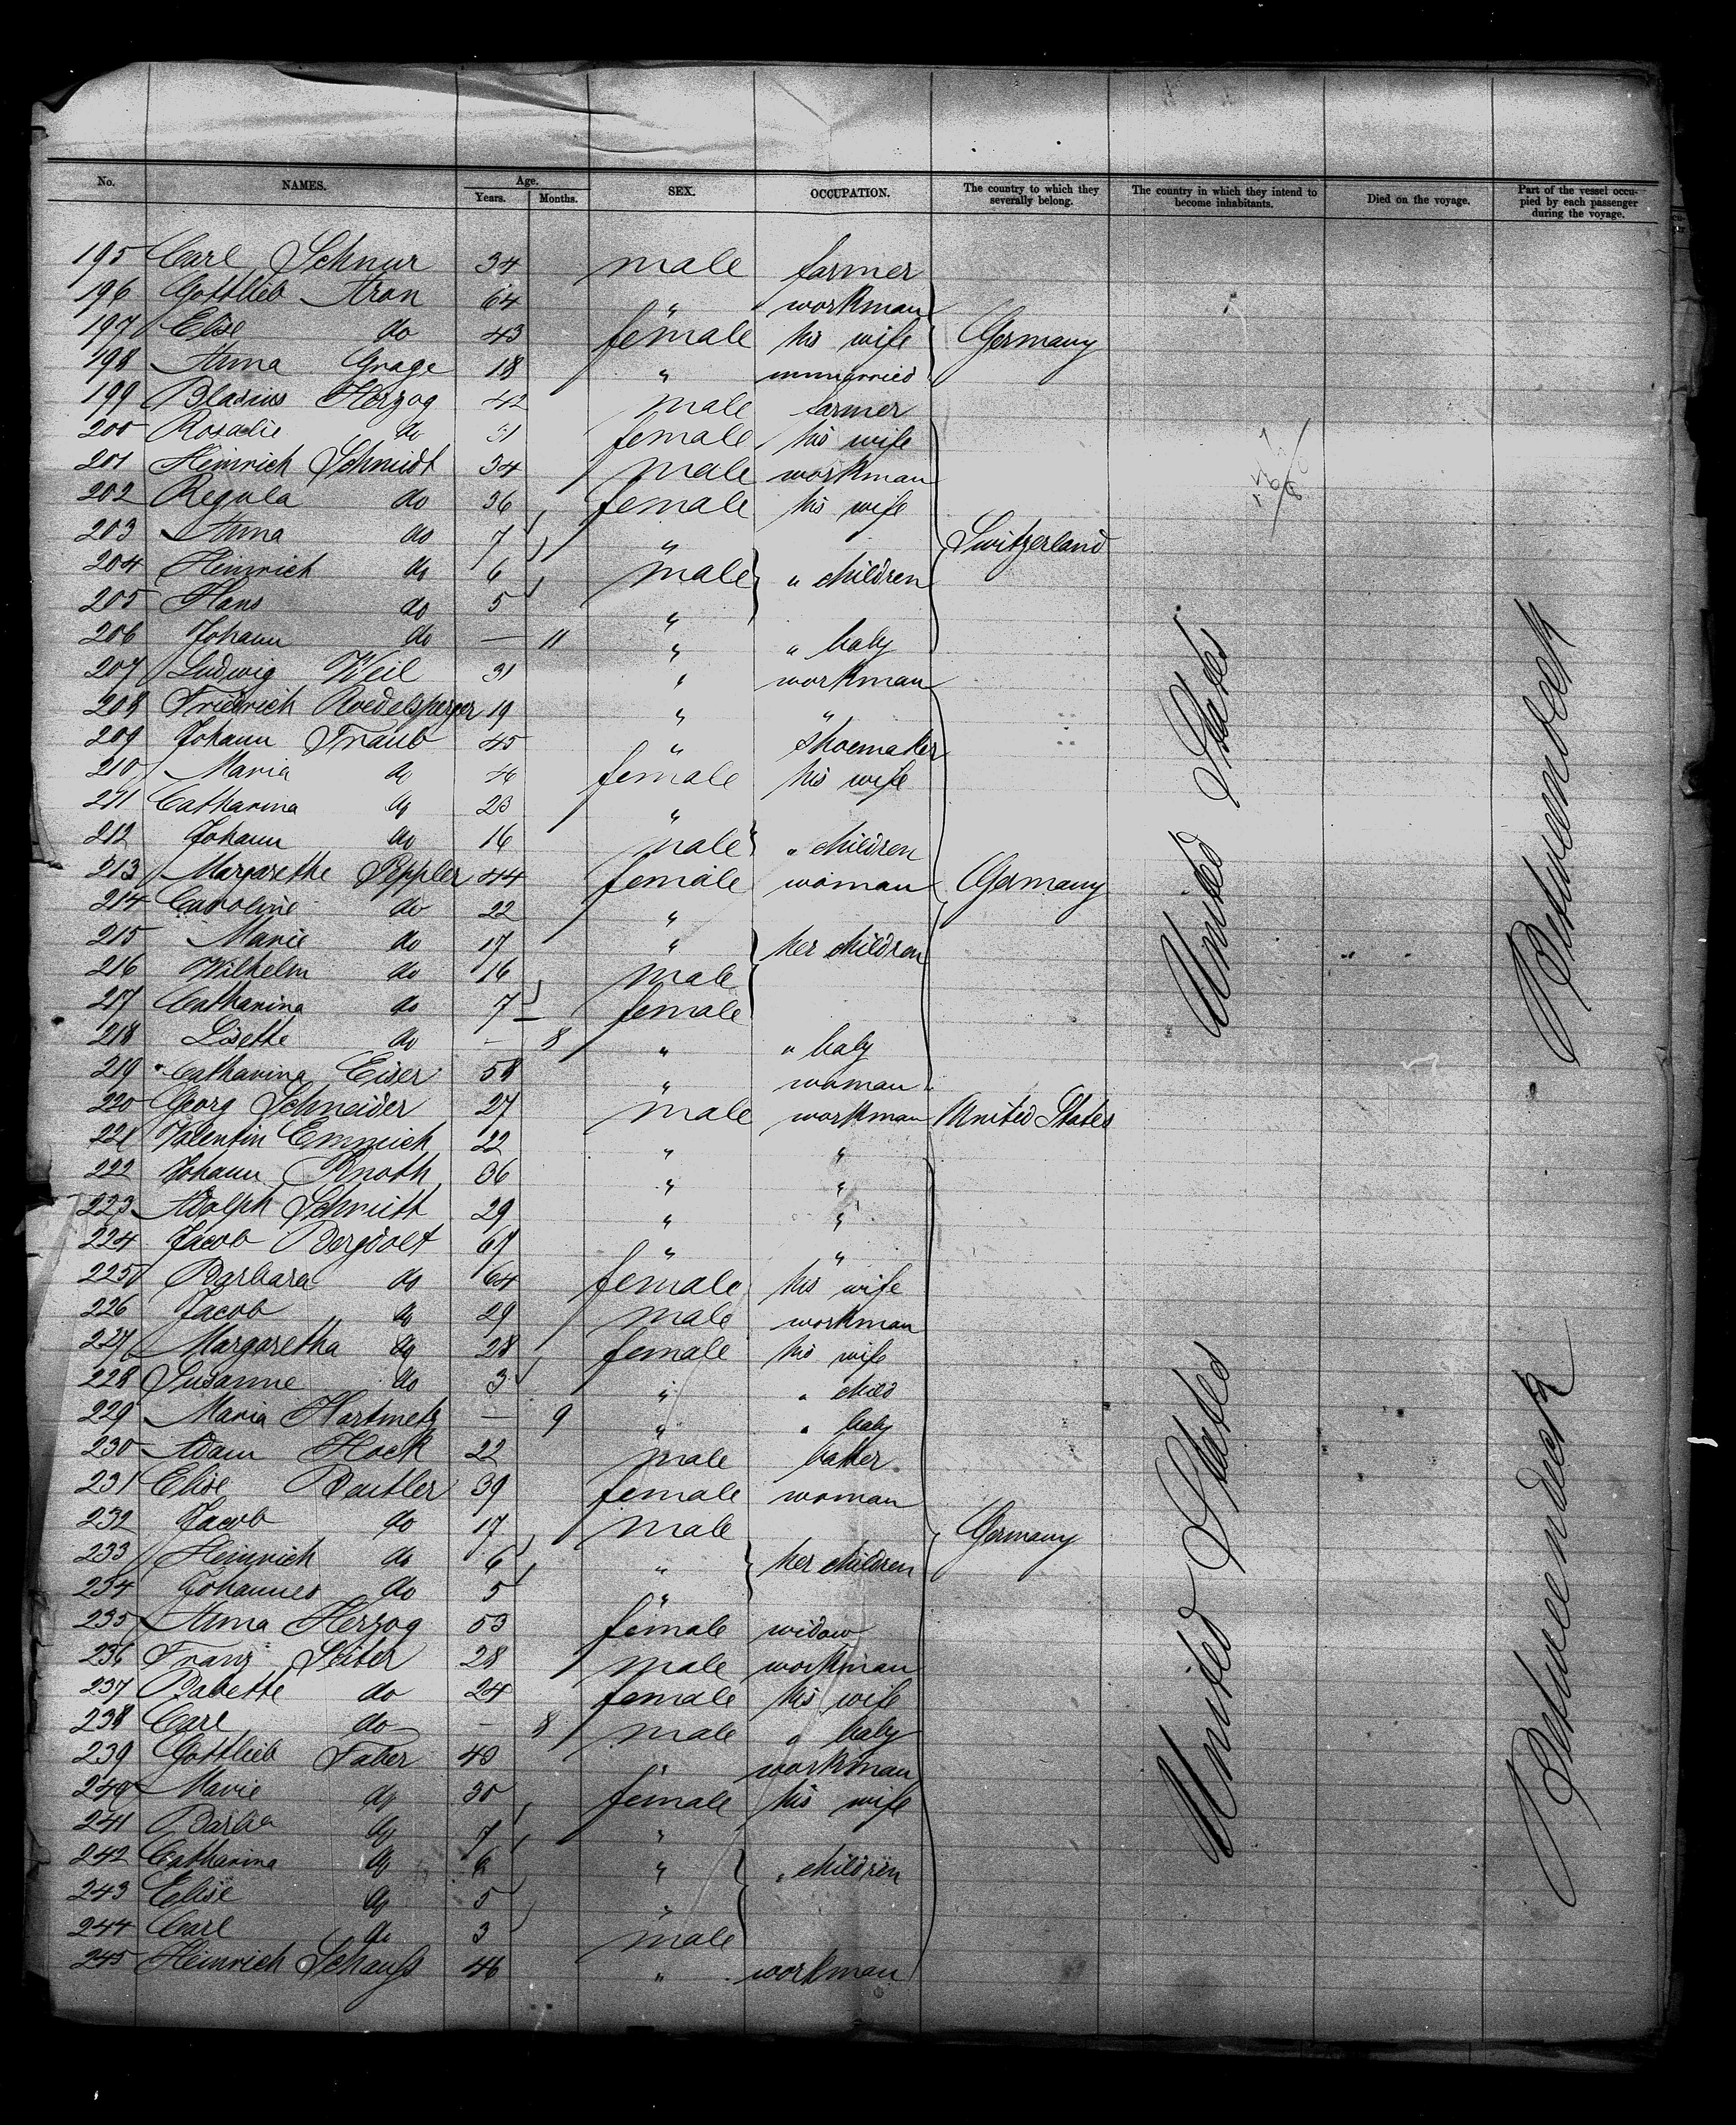 No. NAMES. Age. Years. Months. SEX. OCCUPATION. The country to which they severally belong. The country in which they intend to become inhabitants. Died on the voyage. Part of the vessel occupied by each passenger during the voyage.
195 Carl Schnur 34 male farmer
196 Gottlieb Aron 64 " workman
197 Elise do 43 female his wife Germany
198 Anna Grage 18 " unmarried
199 Blasius Herzog 42 male farmer
200 Rosalie do 31 female his wife
201 Heinrich Schmidt 34 male workman
202 Regula do 36 female his wife
203 Anna do 7 " Switzerland
204 Heinrich do 6 male " children
205 Hans do 5 "
206 Johann do — 11 " " baby
207 Ludwig Weil 31 " workman
208 Friedrich Roedelsperger 19 " "
209 Johann Traub 45 " Shoemaker
210 Maria do 46 female his wife
211 Catharina do 23 "
212 Johann do 16 male " children
213 Margarethe Peppler 44 female woman Germany
214 Caroline do 22 "
215 Marie do 17 " her children
216 Wilhelm do 16 male
217 Catharina do 7 female
218 Lisette do — 8 " " baby
219 Catharina Eiser 58 " woman
220 Georg Schneider 27 male workman United States
221 Valentin Emmich 22 " "
222 Johann Knoth 36 " "
223 Adolph Schmitt 29 " "
224 Jacob Bergdolt 67 " "
225 Barbara do 64 female his wife
226 Jacob do 29 male workman
227 Margaretha do 28 female his wife
228 Susanne do 3 " " child
229 Maria Hartmetz — 9 " " baby
230 Adam Hock 22 male baker
231 Elise Beutler 39 female woman
232 Jacob do 17 male Germany
233 Heinrich do 6 " her children
234 Johannes do 5 "
235 Anna Herzog 53 female widow
236 Franz Seiter 28 male workman
237 Babette do 24 female his wife
238 Carl do — 8 male " baby
239 Gottlieb Faber 40 " workman
240 Marie do 30 female his wife
241 Barba do 7 "
242 Catharina do 6 " " children
243 Elise do 5 "
244 Carl do 3 male
245 Heinrich Schauß 46 " workman
United States
Betweendeck
United States
Betweendeck